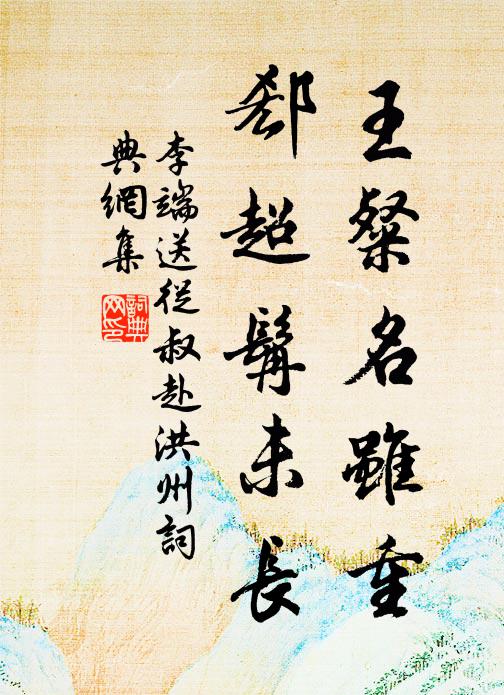 王粲名雖重
郄超髯未長
李端送從叔赴洪州詞
典網集
詞典网印